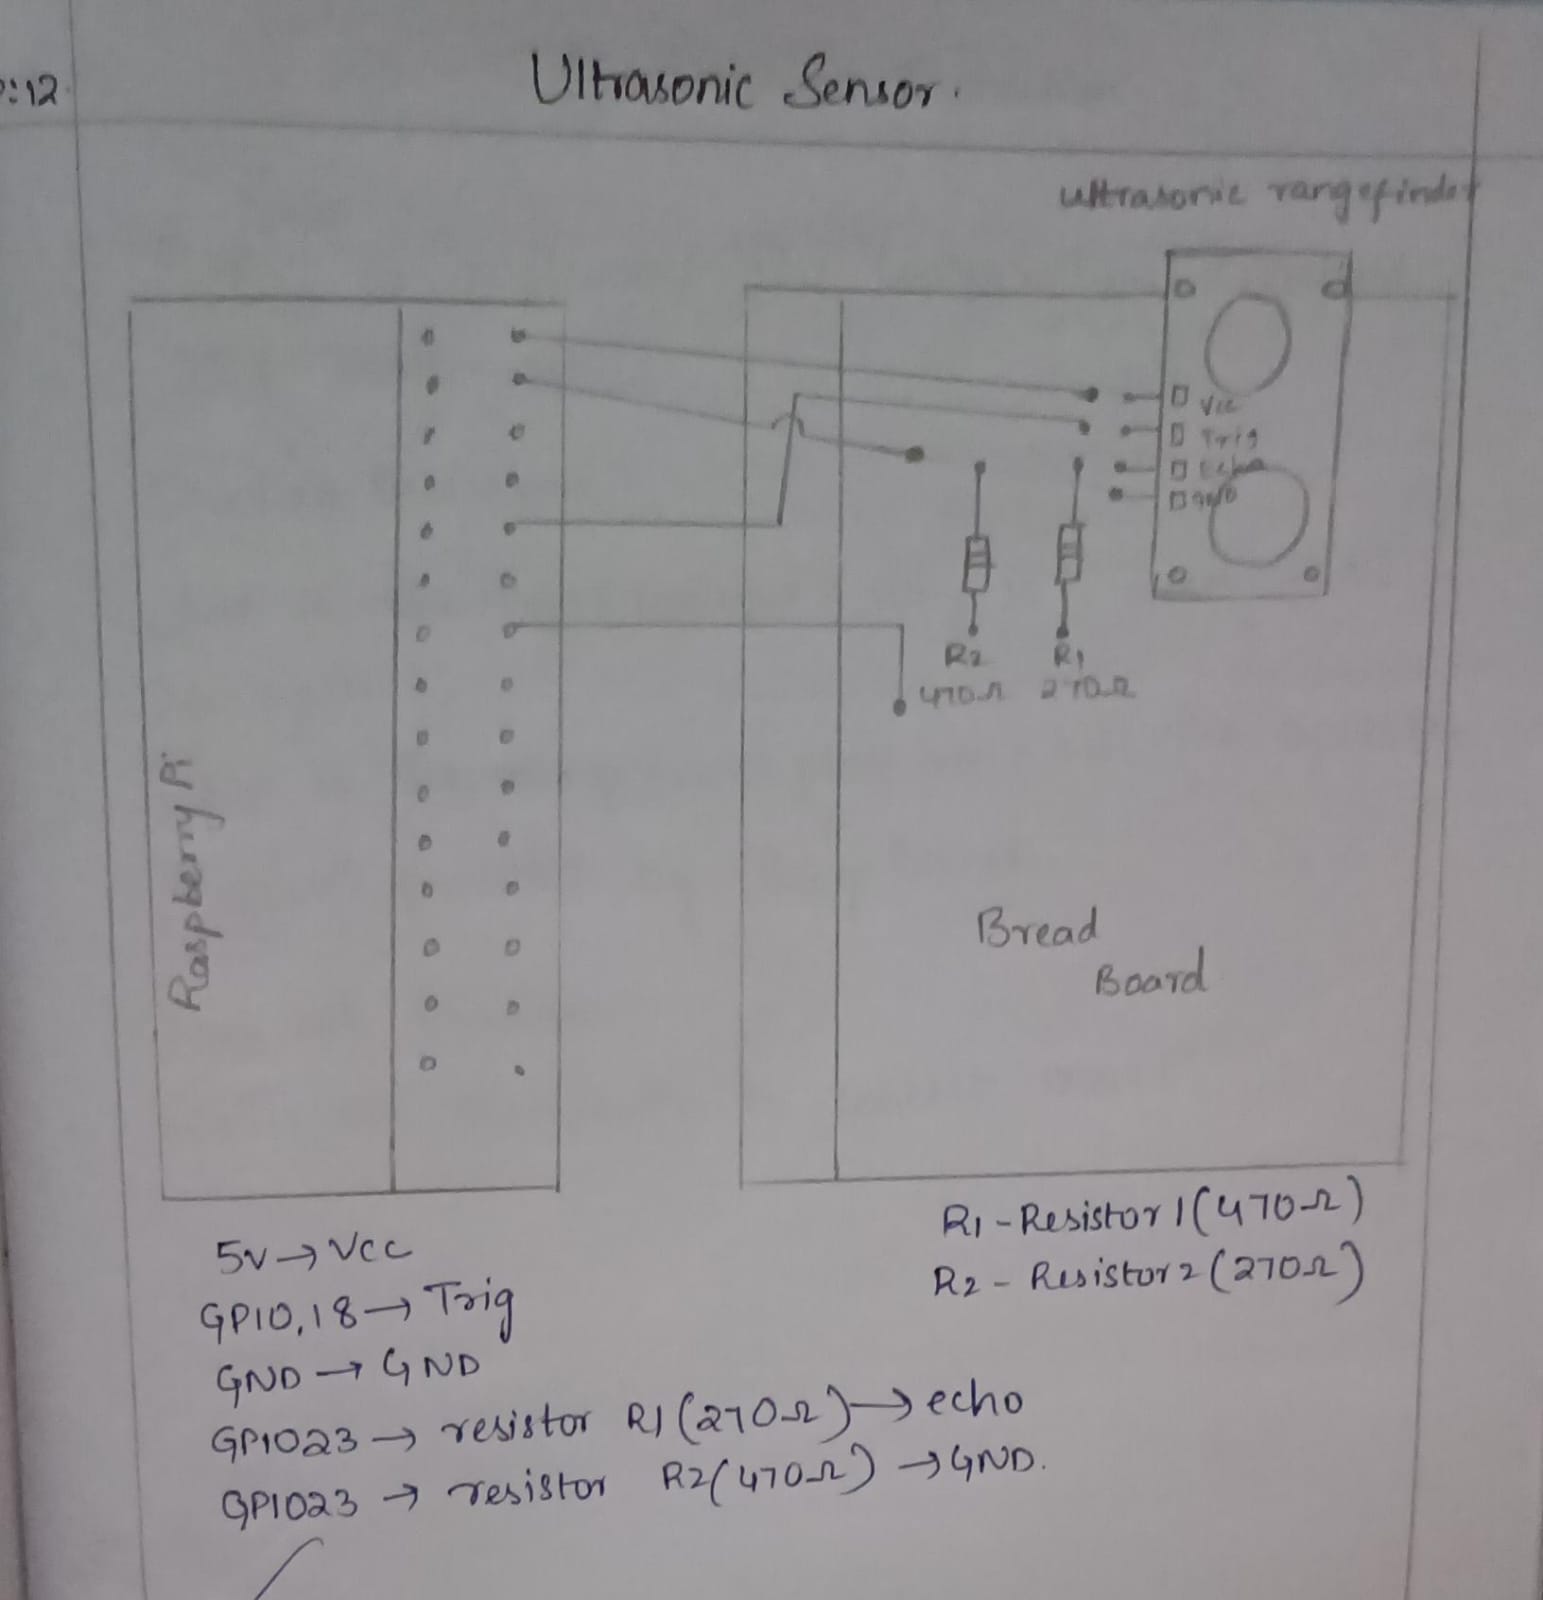 :12
Ultrasonic Sensor.
ultrasonic rangefinder
Vcc
Trig
Echo
GND
R2
470Ω
R1
270Ω
Raspberry Pi
Bread
Board
R1 - Resistor 1 (470Ω)
R2 - Resistor 2 (270Ω)
5v → Vcc
GPIO,18 → Trig
GND → GND
GPIO23 → resistor R1 (270Ω) → echo
GPIO23 → resistor R2 (470Ω) → GND.